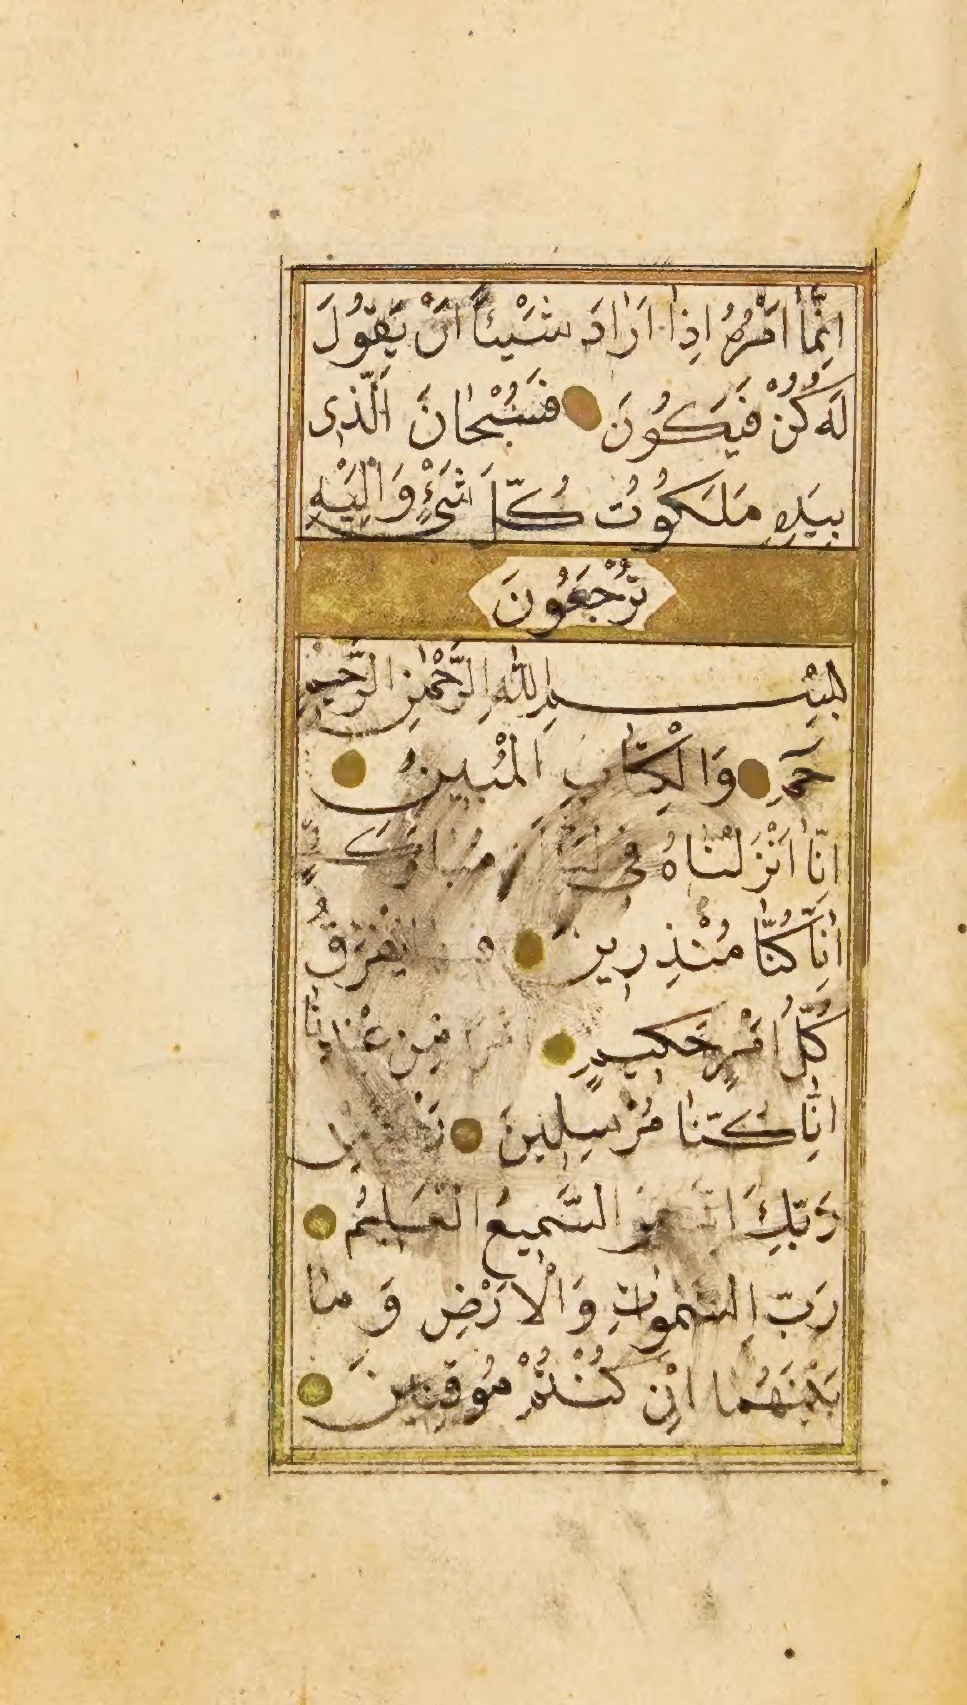 اِنَّمَا اَمْرُهُ اِذَا اَرَادَ شَيْئًا اَنْ يَقُولَ
لَهُ كُنْ فَيَكُونُ فَسُبْحَانَ الَّذِى
بِيَدِهِ مَلَكُوتُ كُلِّ شَىْءٍ وَاِلَيْهِ
تُرْجَعُونَ
بِسْمِ اللهِ الرَّحْمٰنِ الرَّحِيمِ
حٰمۤ وَالْكِتَابِ الْمُبِينِ
اِنَّا اَنْزَلْنَاهُ فِى مُبَارَكَةٍ
اِنَّا كُنَّا مُنْذِرِينَ يُفْرَقُ
كُلُّ اَمْرٍ حَكِيمٍ مِنْ عِنْدِنَا
اِنَّا كُنَّا مُرْسِلِينَ
رَبِّكَ اِنَّهُ هُوَ السَّمِيعُ الْعَلِيمُ
رَبِّ السَّمٰوَاتِ وَالْاَرْضِ وَمَا
بَيْنَهُمَا اِنْ كُنْتُمْ مُوقِنِينَ